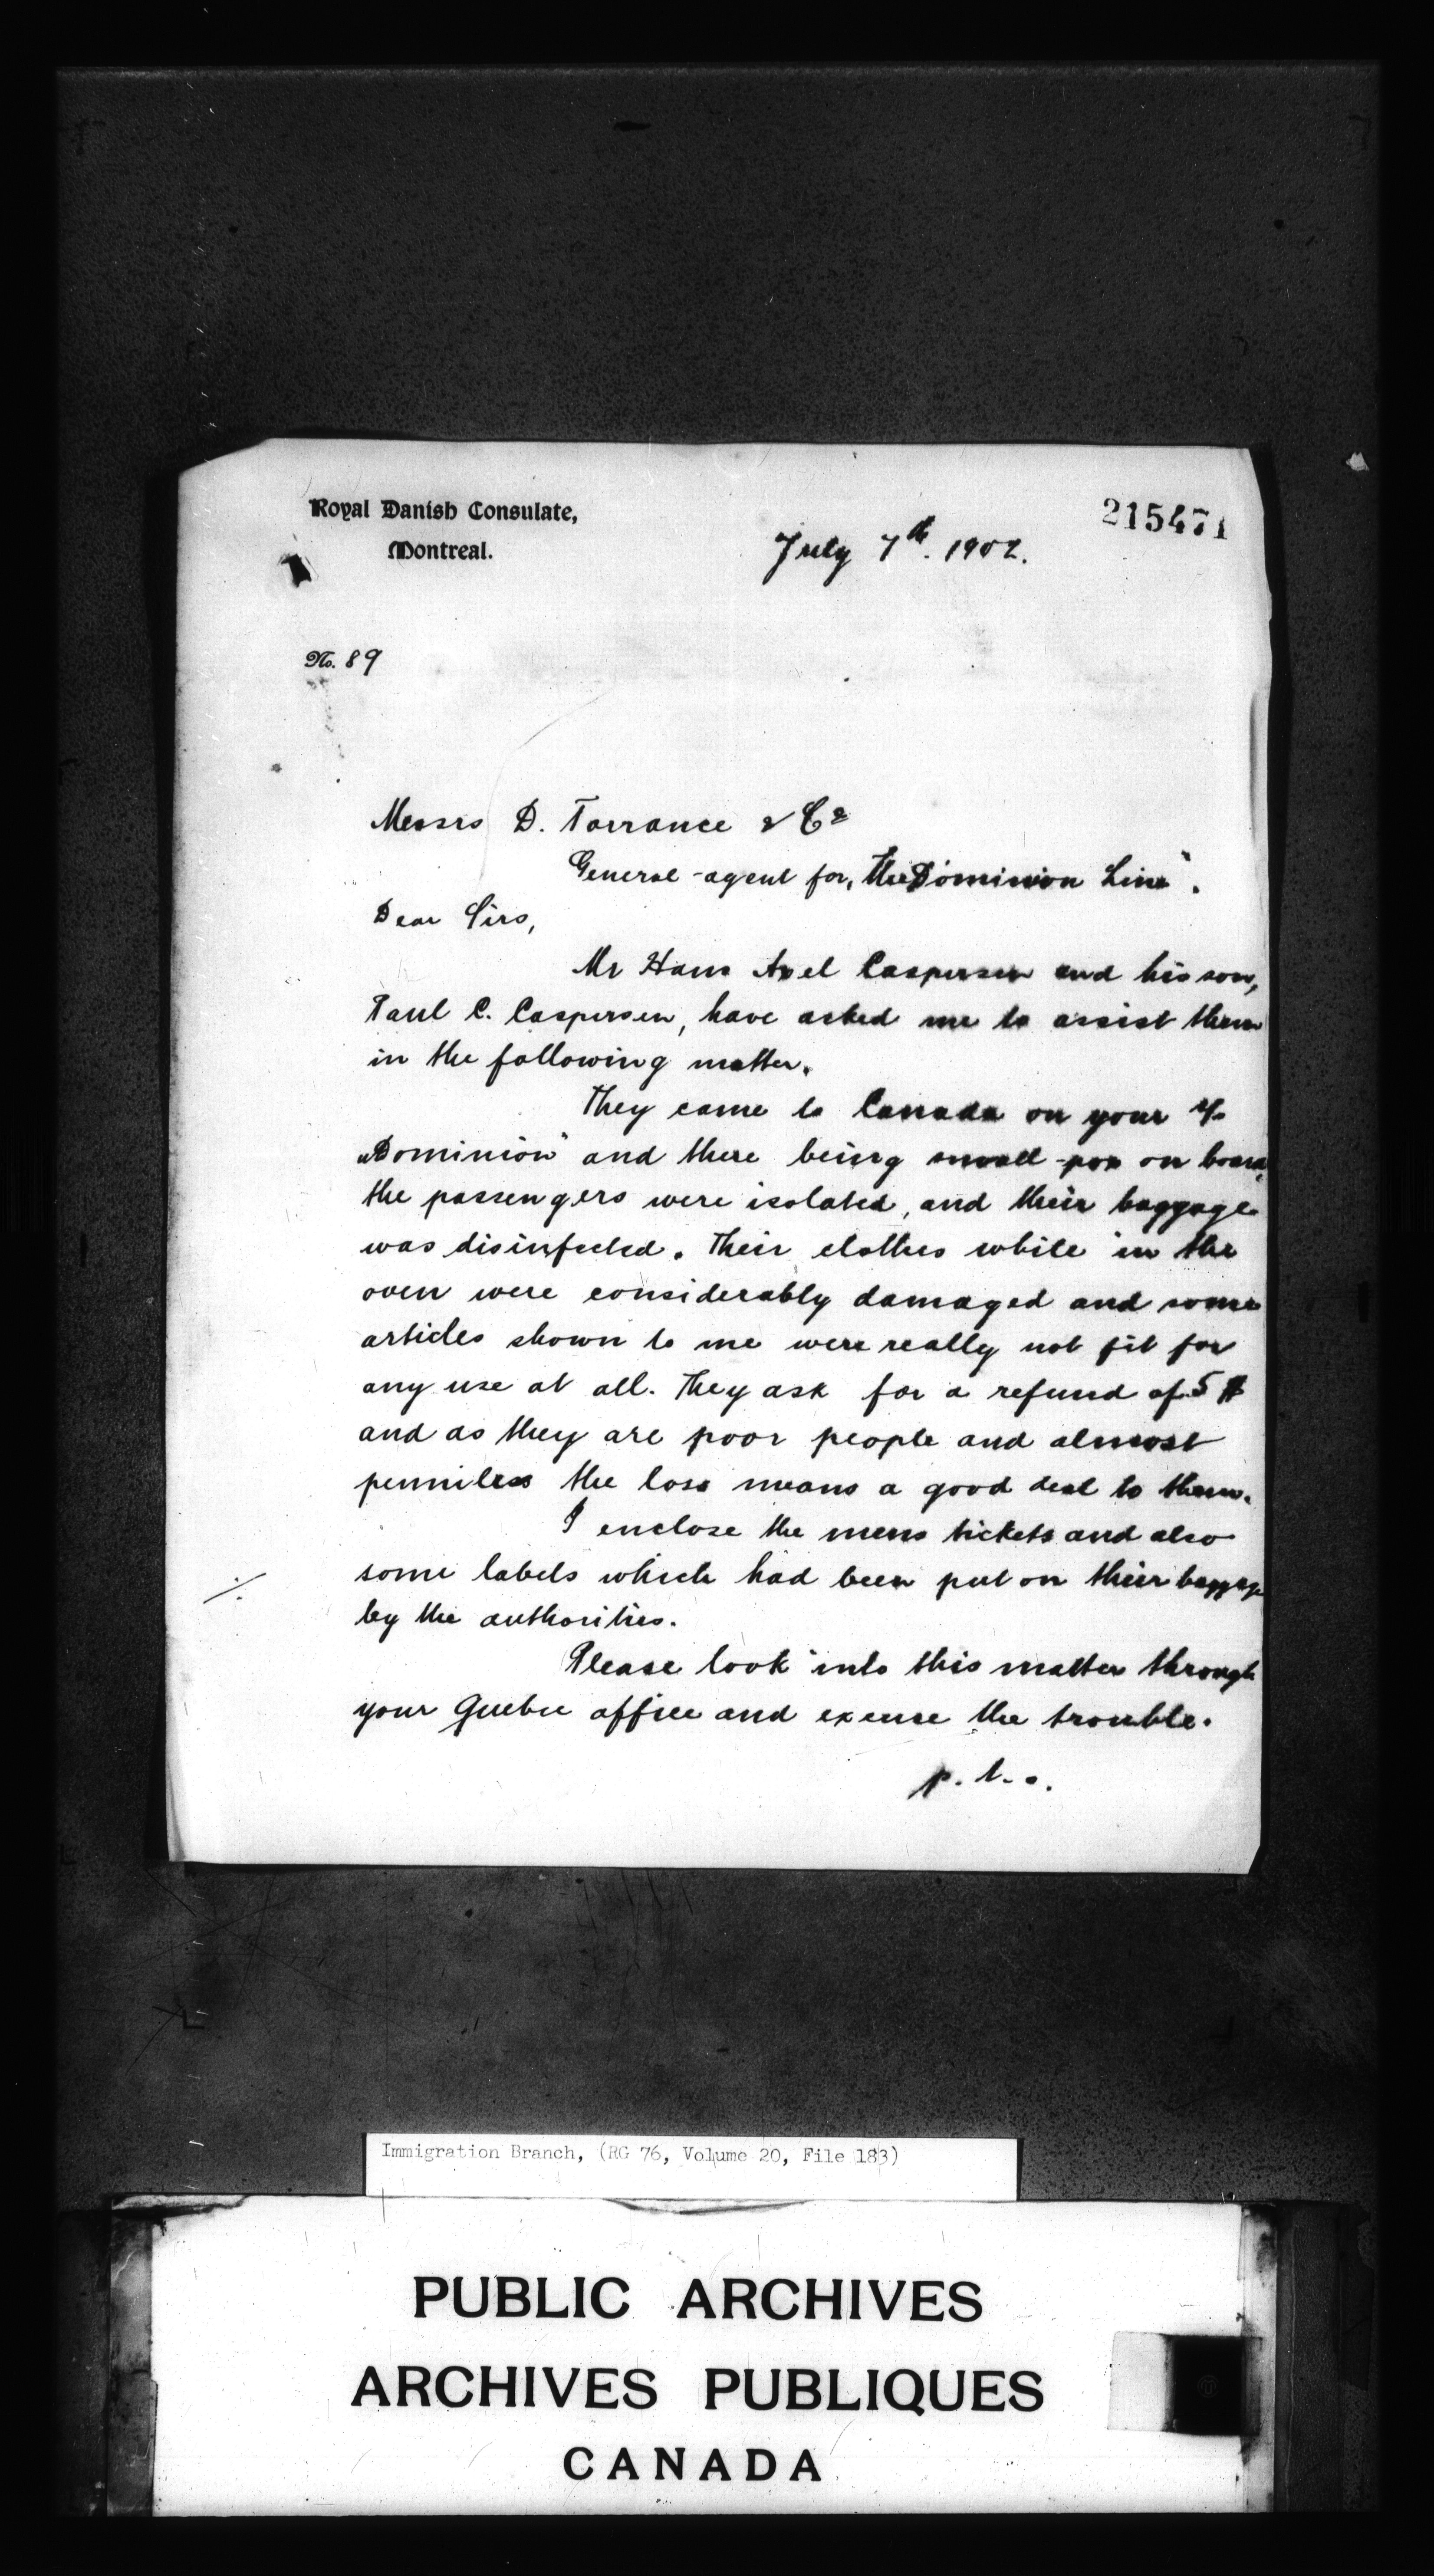 Royal Danish Consulate,
Montreal.
215471
July 7th. 1902.
No. 89
Messrs D. Torrance & Co
General-agent for „The Dominion Line".
Dear Sirs,
Mr Hans Axel Caspersen and his son,
Paul C. Caspersen, have asked me to assist them
in the following matter.
They came to Canada on your S/S
„Dominion" and there being small-pox on board,
the passengers were isolated, and their baggage
was disinfected. Their clothes while in the
oven were considerably damaged and some
articles shown to me were really not fit for
any use at all. They ask for a refund of 5 $
and as they are poor people and almost
penniless the loss means a good deal to them.
I enclose the mens tickets and also
some labels which had been put on their baggage
by the authorities.
Please look into this matter through
your Quebec office and excuse the trouble.
p. t. o.
Immigration Branch, (RG 76, Volume 20, File 183)
PUBLIC ARCHIVES
ARCHIVES PUBLIQUES
CANADA